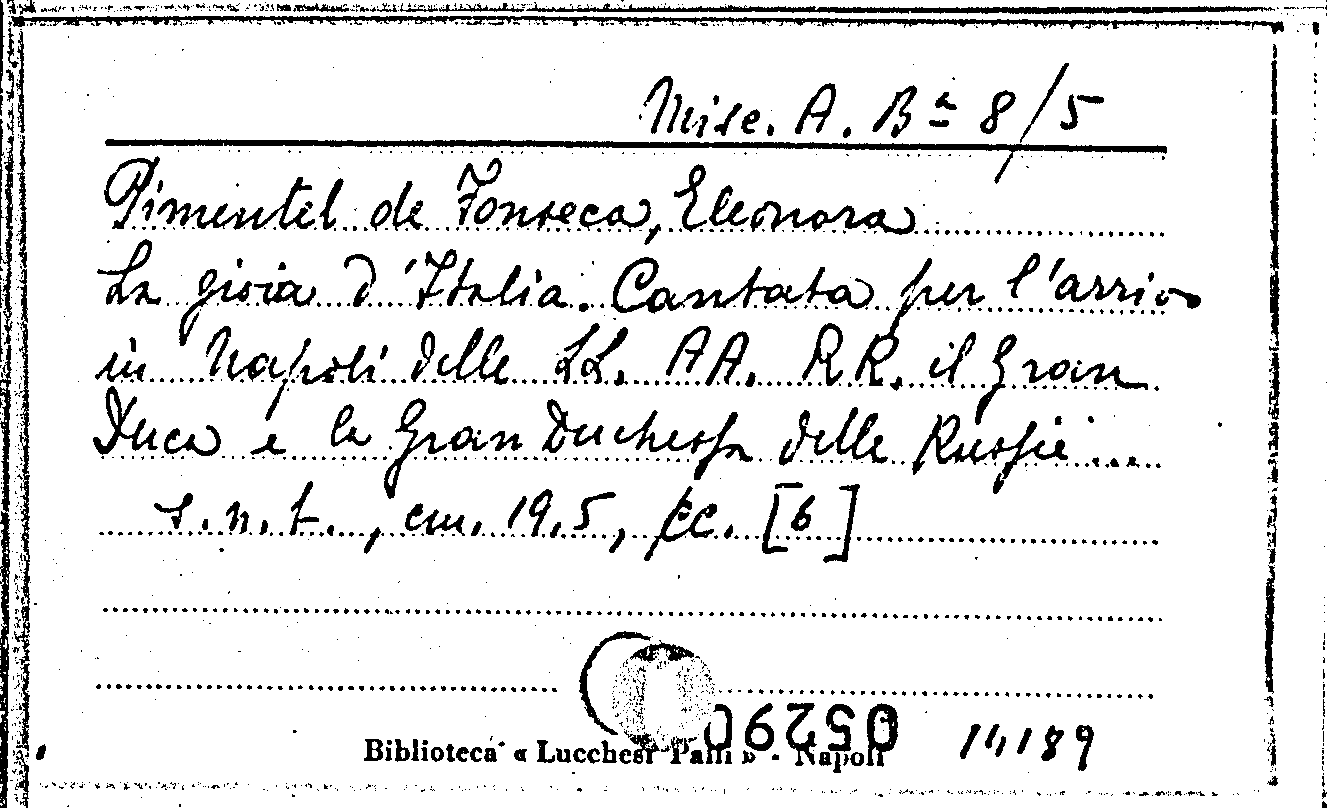 Misc. A. Bª 8/5
Pimentel de Fonseca, Eleonora
La gioia d'Italia. Cantata per l'arrivo
in Napoli delle LL. AA. RR. il Gran
Duca e la Gran Duchessa delle Russie...
s.n.t., cm. 19,5, cc. [6]
05290
Biblioteca « Lucchesi Palli » - Napoli
14189